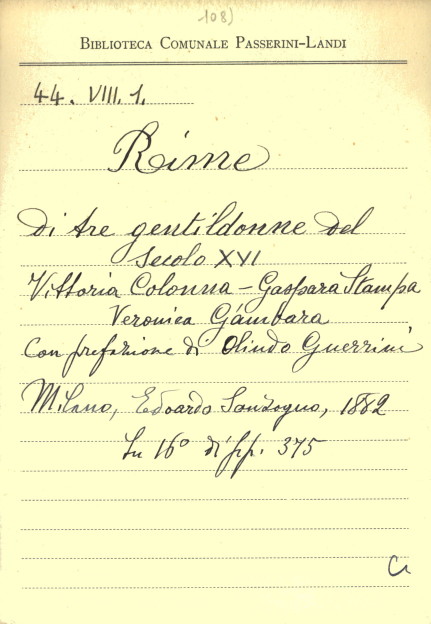 108)
BIBLIOTECA COMUNALE PASSERINI-LANDI
44. VIII. 1.
Rime
di tre gentildonne del
secolo XVI
Vittoria Colonna - Gaspara Stampa
Veronica Gàmbara
Con prefazione di Olindo Guerrini
Milano, Edoardo Sonzogno, 1882
In 16° di pp. 375